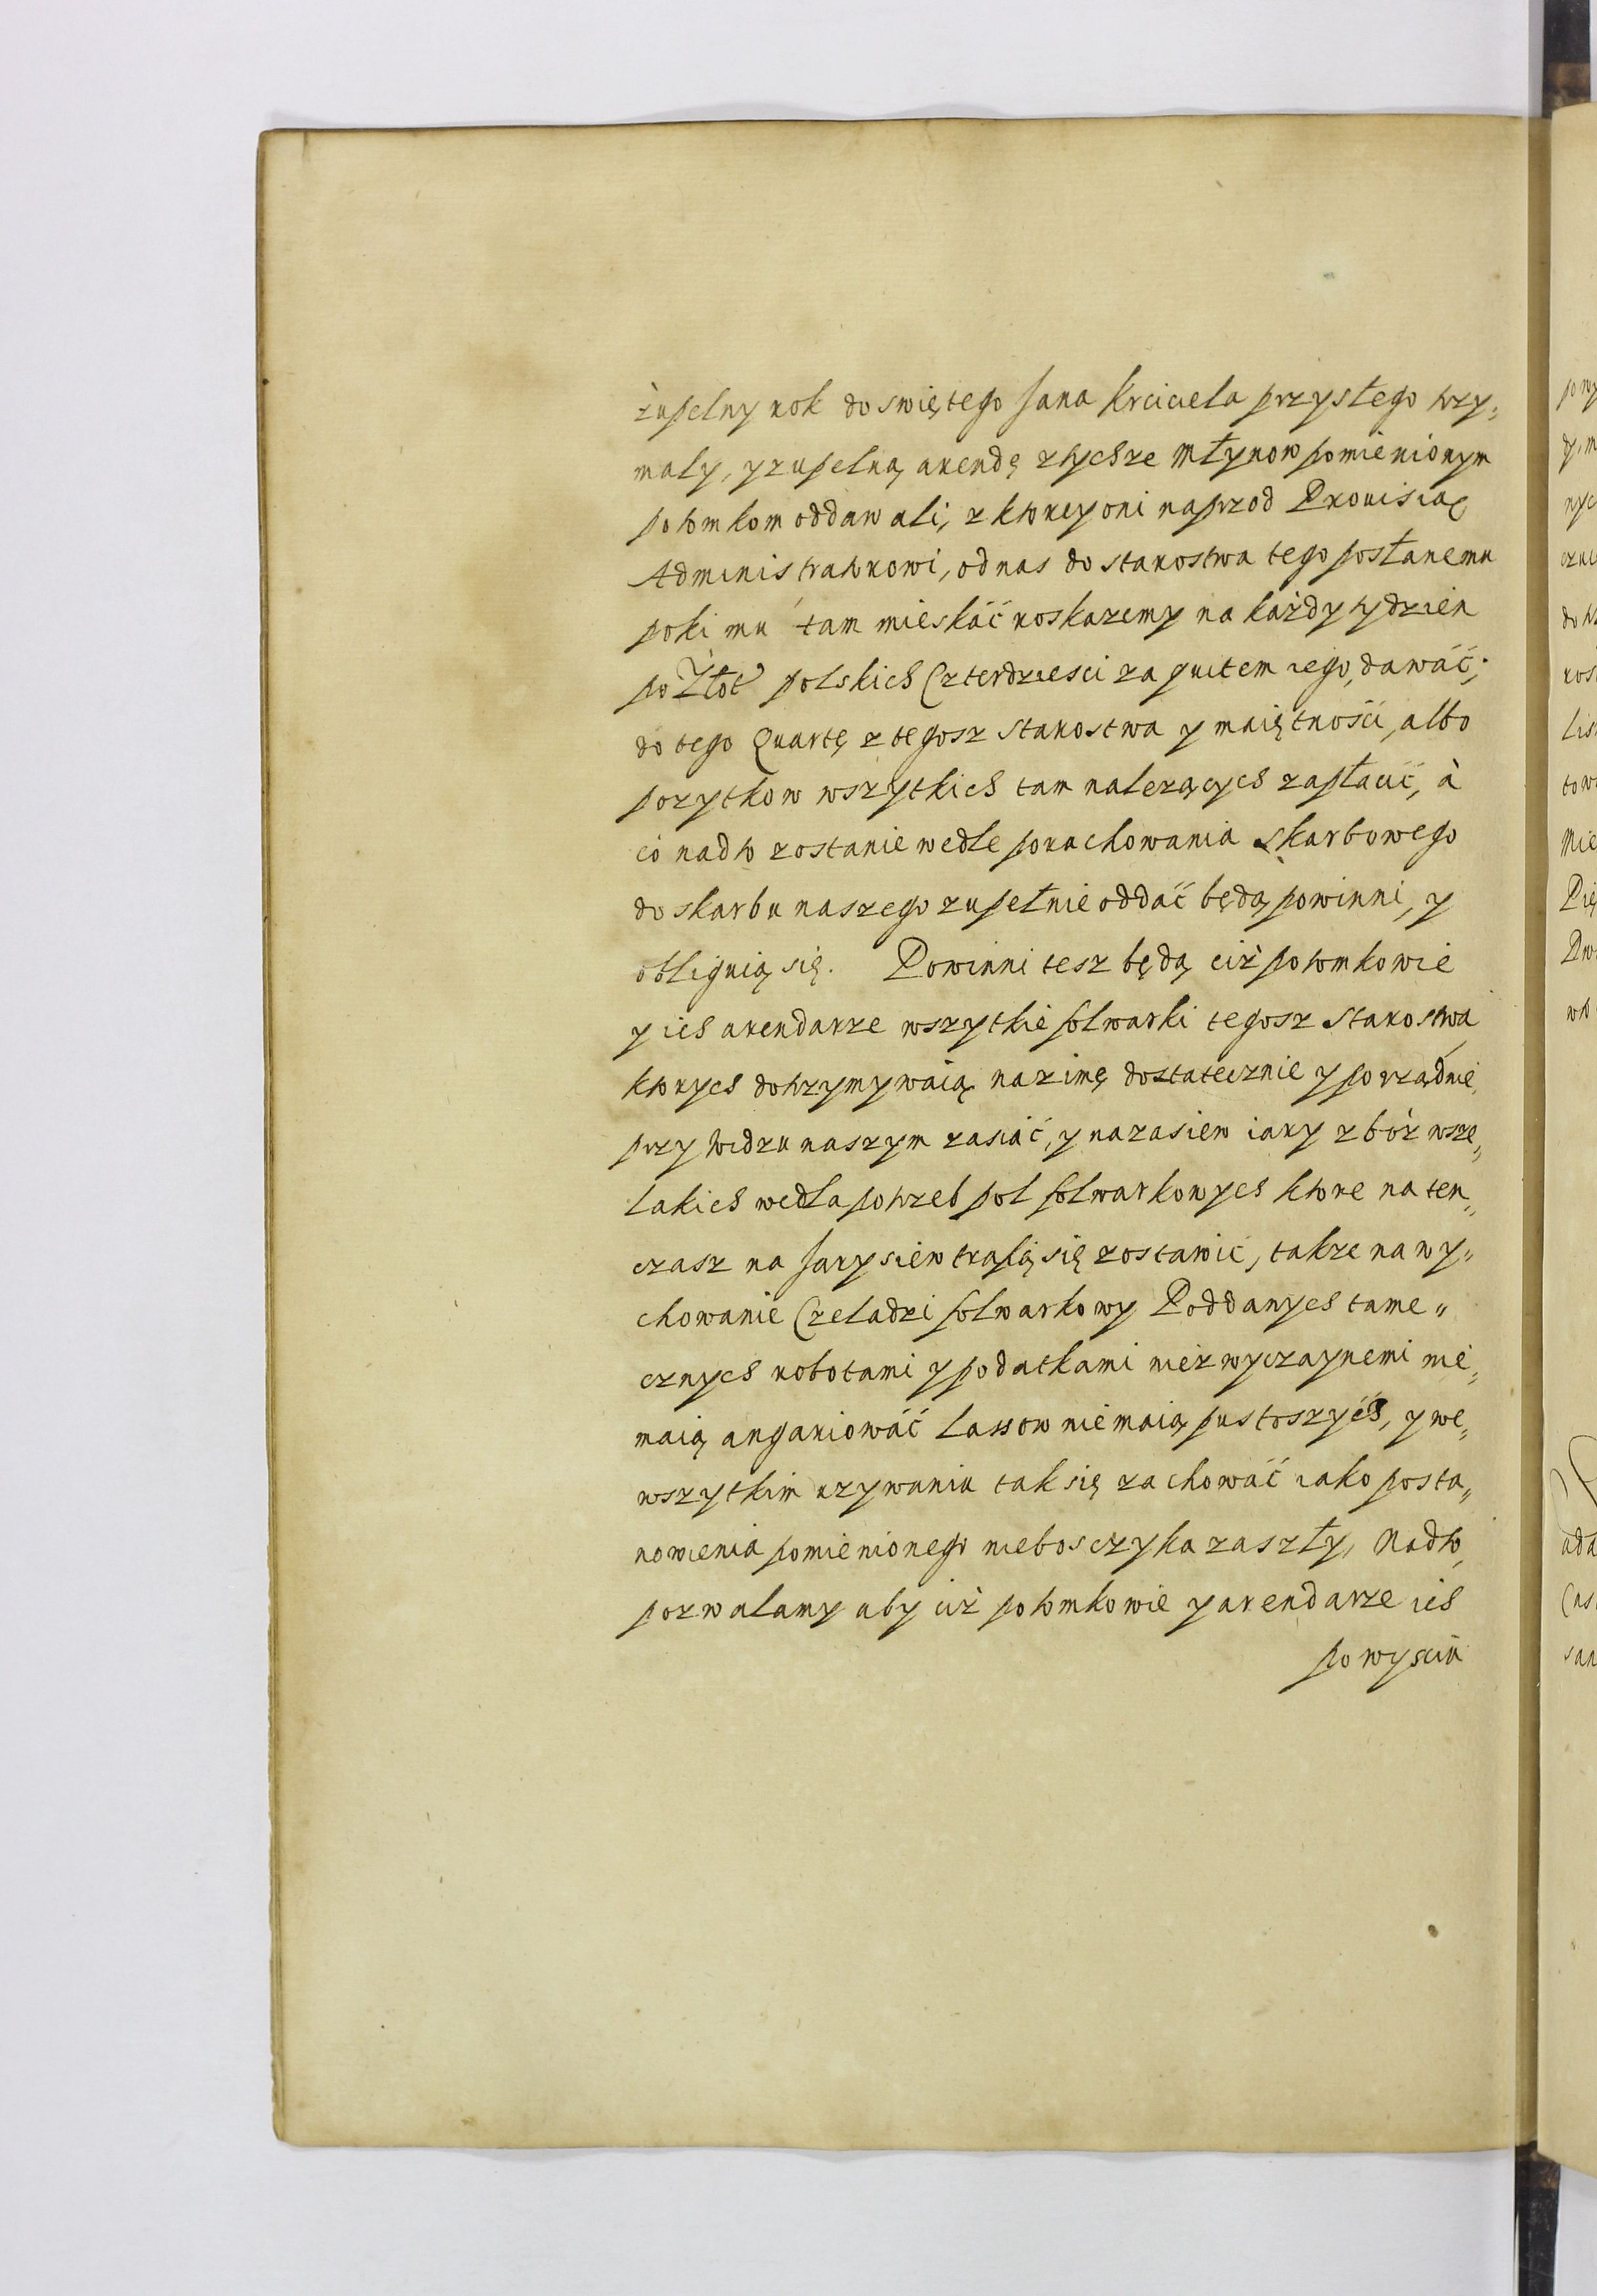 zupelny rok do swiętego Jana Krciciela przysłego trzy„
maly, y zupelną arendę z tychze Młynow pomienionym
potomkom oddawali, z ktorey oni naprzod Prouisią
Administratorowi, od nas do starostwa tego posłanemu
poki mu tam mieskać roskazemy na każdy tydzien
po Złot polskich Czterdziesci za quitem iego, dawać;
do tego Quartę z tegosz starostwa y maiętności, albo
pozytkow wszytkich tam nalezących zapłacić, à
co nadto zostanie wedle porachowania skarbowego
do skarbu naszego zupełnie oddać będą powinni, y
obliguią się. Powinni tesz będą ciż potomkowie
y ich arendarze wszytkie folwarki tegosz starostwa
ktorych dotrzymywaią na zimę dostatecznie y porządnie
przy widzu naszym zasiać, y na zasiew iary zbòż wsze„
lakich wedla potrzeb pol folwarkowych ktore na ten„
czasz na Jary siew trafią się zostawic, takze na wy„
chowanie Czeladzi folwarkowy Poddanych tame„
cznych robotami y podatkami niezwyczaynemi nie„
maią angariować Lassow nie maią pustoszych, y we„
wszytkim uzywaniu tak się zachować iako posta„
nowienia pomienionego nieboszczyka zaszły, Nadto
pozwalamy aby ciż potomkowie y arendarze ich
po wysciu